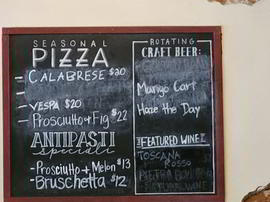 SEASONAL
PIZZA
- CALABRESE $20
-
- VESPA $20
- Prosciutto + Fig $22
ANTIPASTI
speciali
- Prosciutto + Melon $13
- Bruschetta $12
ROTATING
CRAFT BEER:
Mango Cart
Haze the Day
FEATURED WINE
TOSCANA
ROSSO